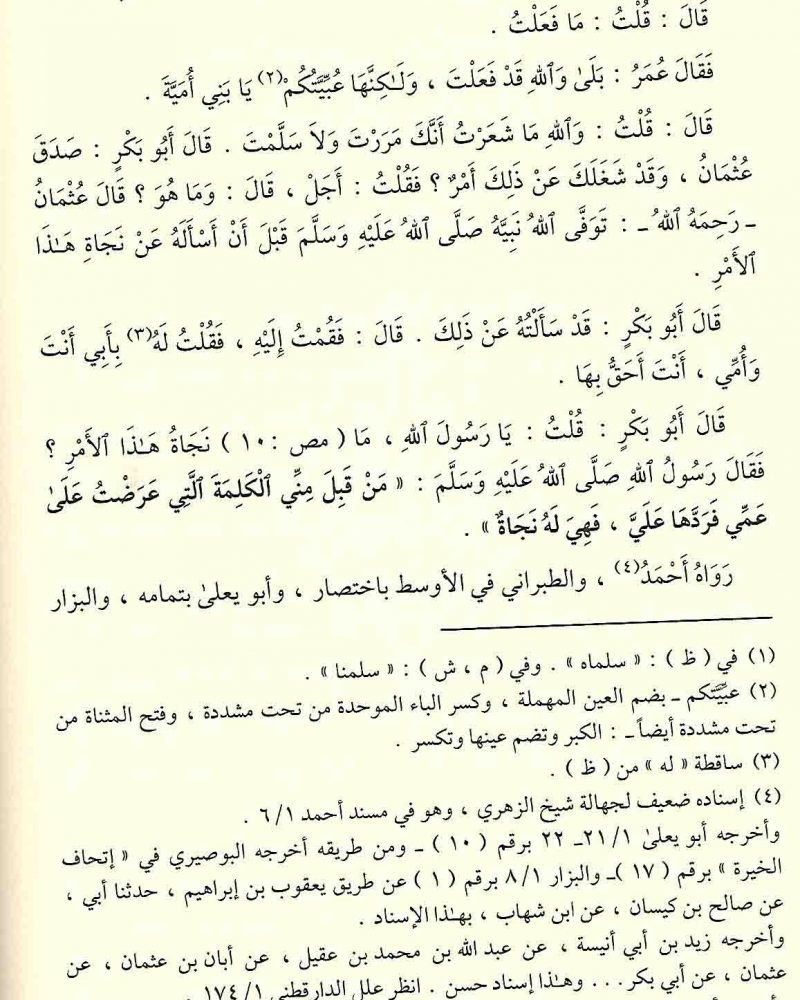 قَالَ : قُلْتُ : مَا فَعَلْتُ .
فَقَالَ عُمَرُ : بَلَىٰ وَٱللهِ قَدْ فَعَلْتَ ، وَلَـٰكِنَّهَا عُبِّيَّتُكُمْ(٢) يَا بَنِي أُمَيَّةَ .
قَالَ : قُلْتُ : وَٱللهِ مَا شَعَرْتُ أَنَّكَ مَرَرْتَ وَلاَ سَلَّمْتَ . قَالَ أَبُو بَكْرٍ : صَدَقَ
عُثْمَانُ ، وَقَدْ شَغَلَكَ عَنْ ذَلِكَ أَمْرٌ ؟ فَقُلْتُ : أَجَلْ ، قَالَ : وَمَا هُوَ ؟ قَالَ عُثْمَانُ
ـ رَحِمَهُ ٱللهُ ـ : تَوَفَّى ٱللهُ نَبِيَّهُ صَلَّى ٱللهُ عَلَيْهِ وَسَلَّمَ قَبْلَ أَنْ أَسْأَلَهُ عَنْ نَجَاةِ هَـٰذَا
ٱلأَمْرِ .
قَالَ أَبُو بَكْرٍ : قَدْ سَأَلْتُهُ عَنْ ذَلِكَ . قَالَ : فَقُمْتُ إِلَيْهِ ، فَقُلْتُ لَهُ(٣) بِأَبِي أَنْتَ
وَأُمِّي ، أَنْتَ أَحَقُّ بِهَا .
قَالَ أَبُو بَكْرٍ : قُلْتُ : يَا رَسُولَ ٱللهِ ، مَا ( مص : ١٠ ) نَجَاةُ هَـٰذَا ٱلأَمْرِ ؟
فَقَالَ رَسُولُ ٱللهِ صَلَّى ٱللهُ عَلَيْهِ وَسَلَّمَ : « مَنْ قَبِلَ مِنِّي ٱلْكَلِمَةَ ٱلَّتِي عَرَضْتُ عَلَىٰ
عَمِّي فَرَدَّهَا عَلَيَّ ، فَهِيَ لَهُ نَجَاةٌ » .
رَوَاهُ أَحْمَدُ(٤) ، والطبراني في الأوسط باختصار ، وأبو يعلىٰ بتمامه ، والبزار
(١) في ( ظ ) : « سلماه » . وفي ( م ، ش ) : « سلمنا » .
(٢) عبِّيَّتكم ـ بضم العين المهملة ، وكسر الباء الموحدة من تحت مشددة ، وفتح المثناة من
تحت مشددة أيضاً ـ : الكبر وتضم عينها وتكسر .
(٣) ساقطة « له » من ( ظ ) .
(٤) إسناده ضعيف لجهالة شيخ الزهري ، وهو في مسند أحمد ١/ ٦ .
وأخرجه أبو يعلىٰ ١/ ٢١ـ ٢٢ برقم ( ١٠ ) ـ ومن طريقه أخرجه البوصيري في « إتحاف
الخيرة » برقم ( ١٧ )ـ والبزار ١/ ٨ برقم ( ١ ) عن طريق يعقوب بن إبراهيم ، حدثنا أبي ،
عن صالح بن كيسان ، عن ابن شهاب ، بهـٰذا الإسناد .
وأخرجه زيد بن أبي أنيسة ، عن عبد الله بن محمد بن عقيل ، عن أبان بن عثمان ، عن
عثمان ، عن أبي بكر . . . وهـٰذا إسناد حسن . انظر علل الدارقطني ١/ ١٧٤ .